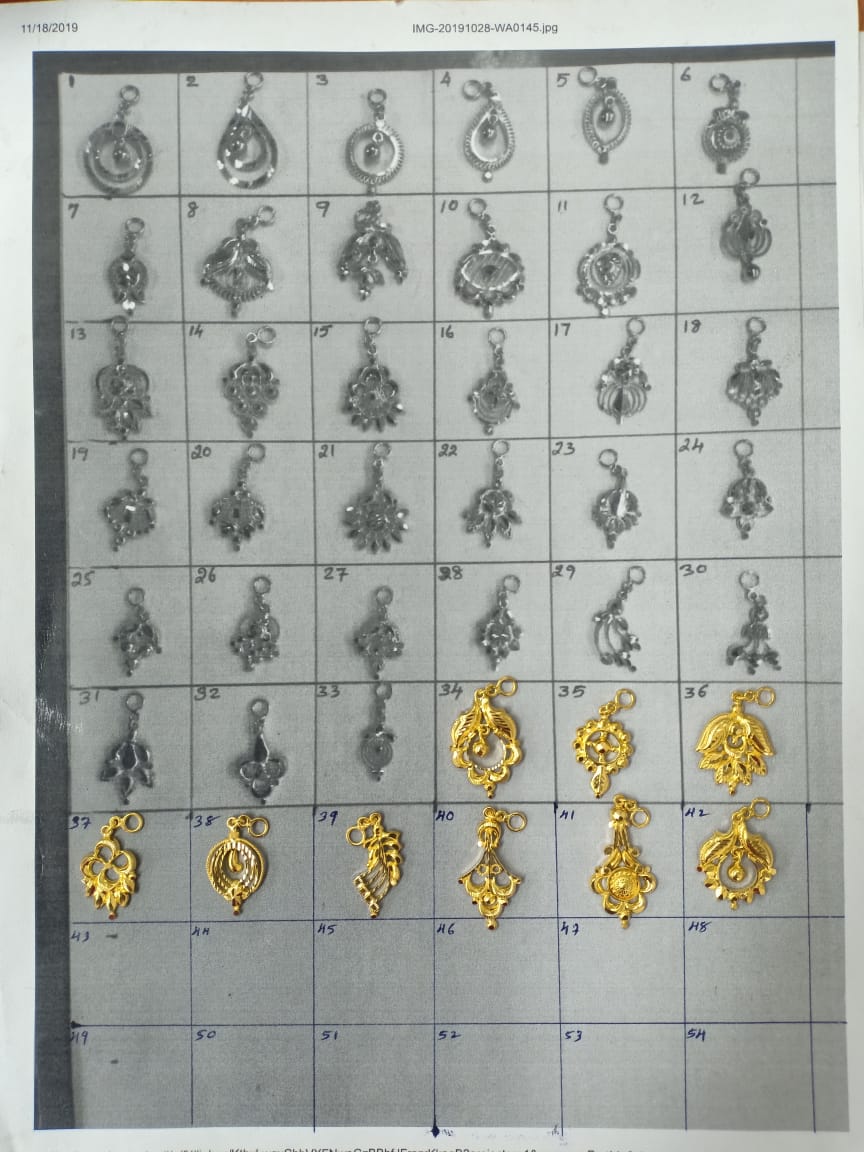 11/18/2019 IMG-20191028-WA0145.jpg
1 2 3 4 5 6
7 8 9 10 11 12
13 14 15 16 17 18
19 20 21 22 23 24
25 26 27 28 29 30
31 32 33 34 35 36
37 38 39 40 41 42
43 44 45 46 47 48
49 50 51 52 53 54